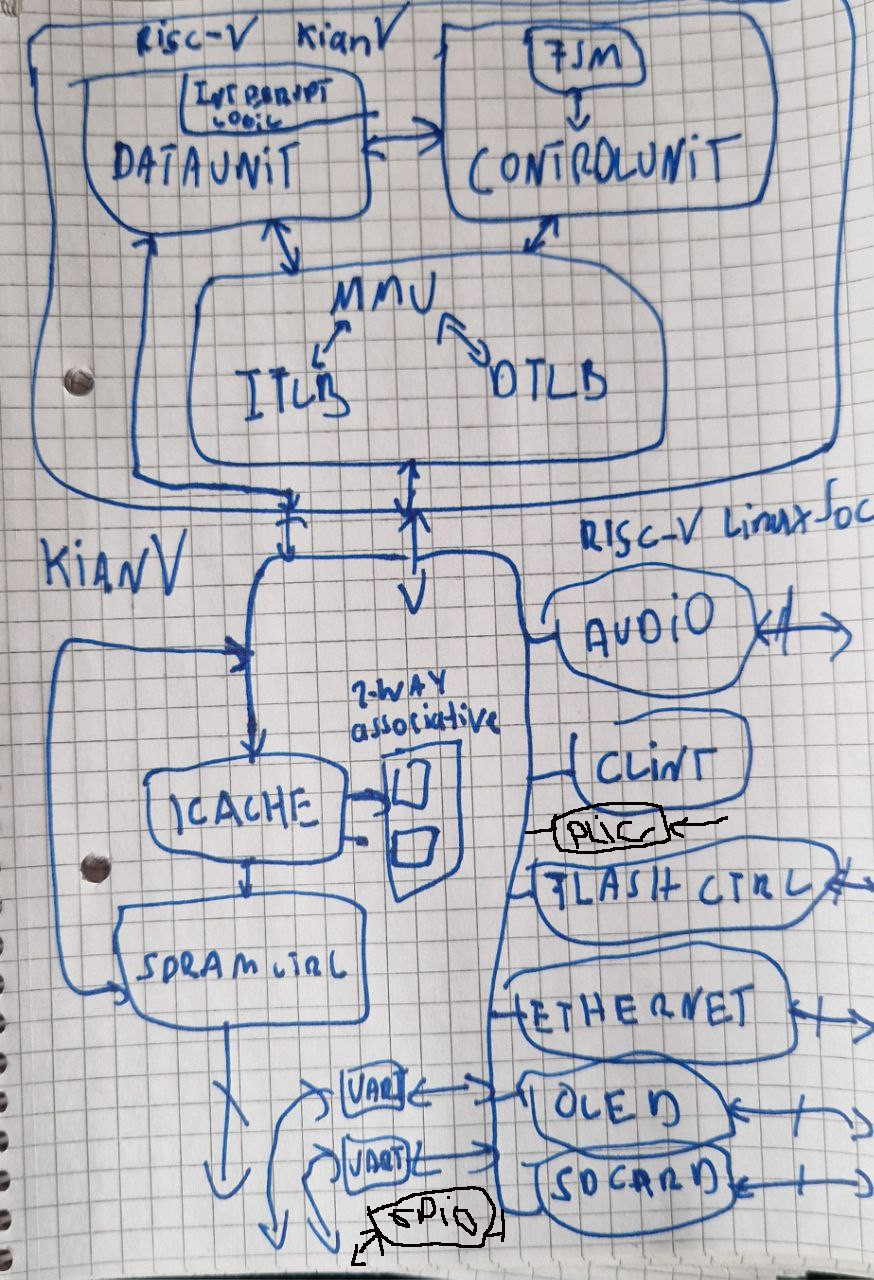 RISC-V KianV
INTERRUPT
LOGIC
DATAUNIT
FSM
CONTROLUNIT
MMU
ITLB
DTLB
KianV
RISC-V Linux SoC
AUDIO
2-WAY
associative
CLINT
ICACHE
PLIC
FLASH CTRL
SDRAM CTRL
ETHERNET
UART
OLED
UART
SDCARD
GPIO